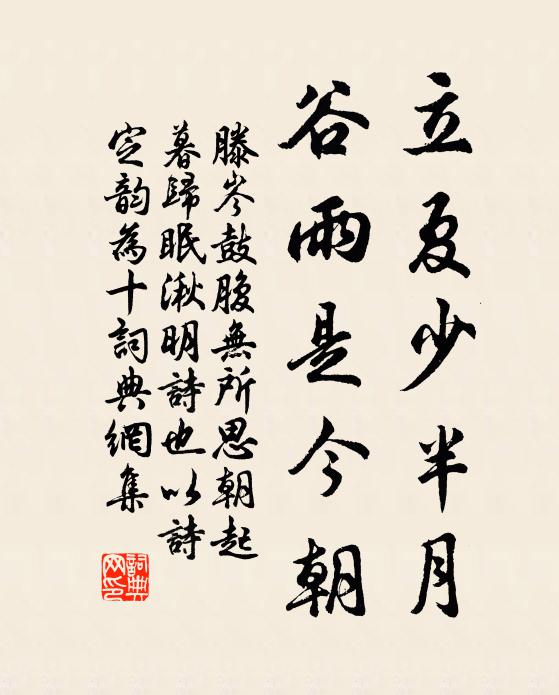 立夏少半月
谷雨是今朝
滕岑鼓腹無所思朝起
暮歸眠湫明詩也以詩
定韵為十詞典網集
詞典
网印